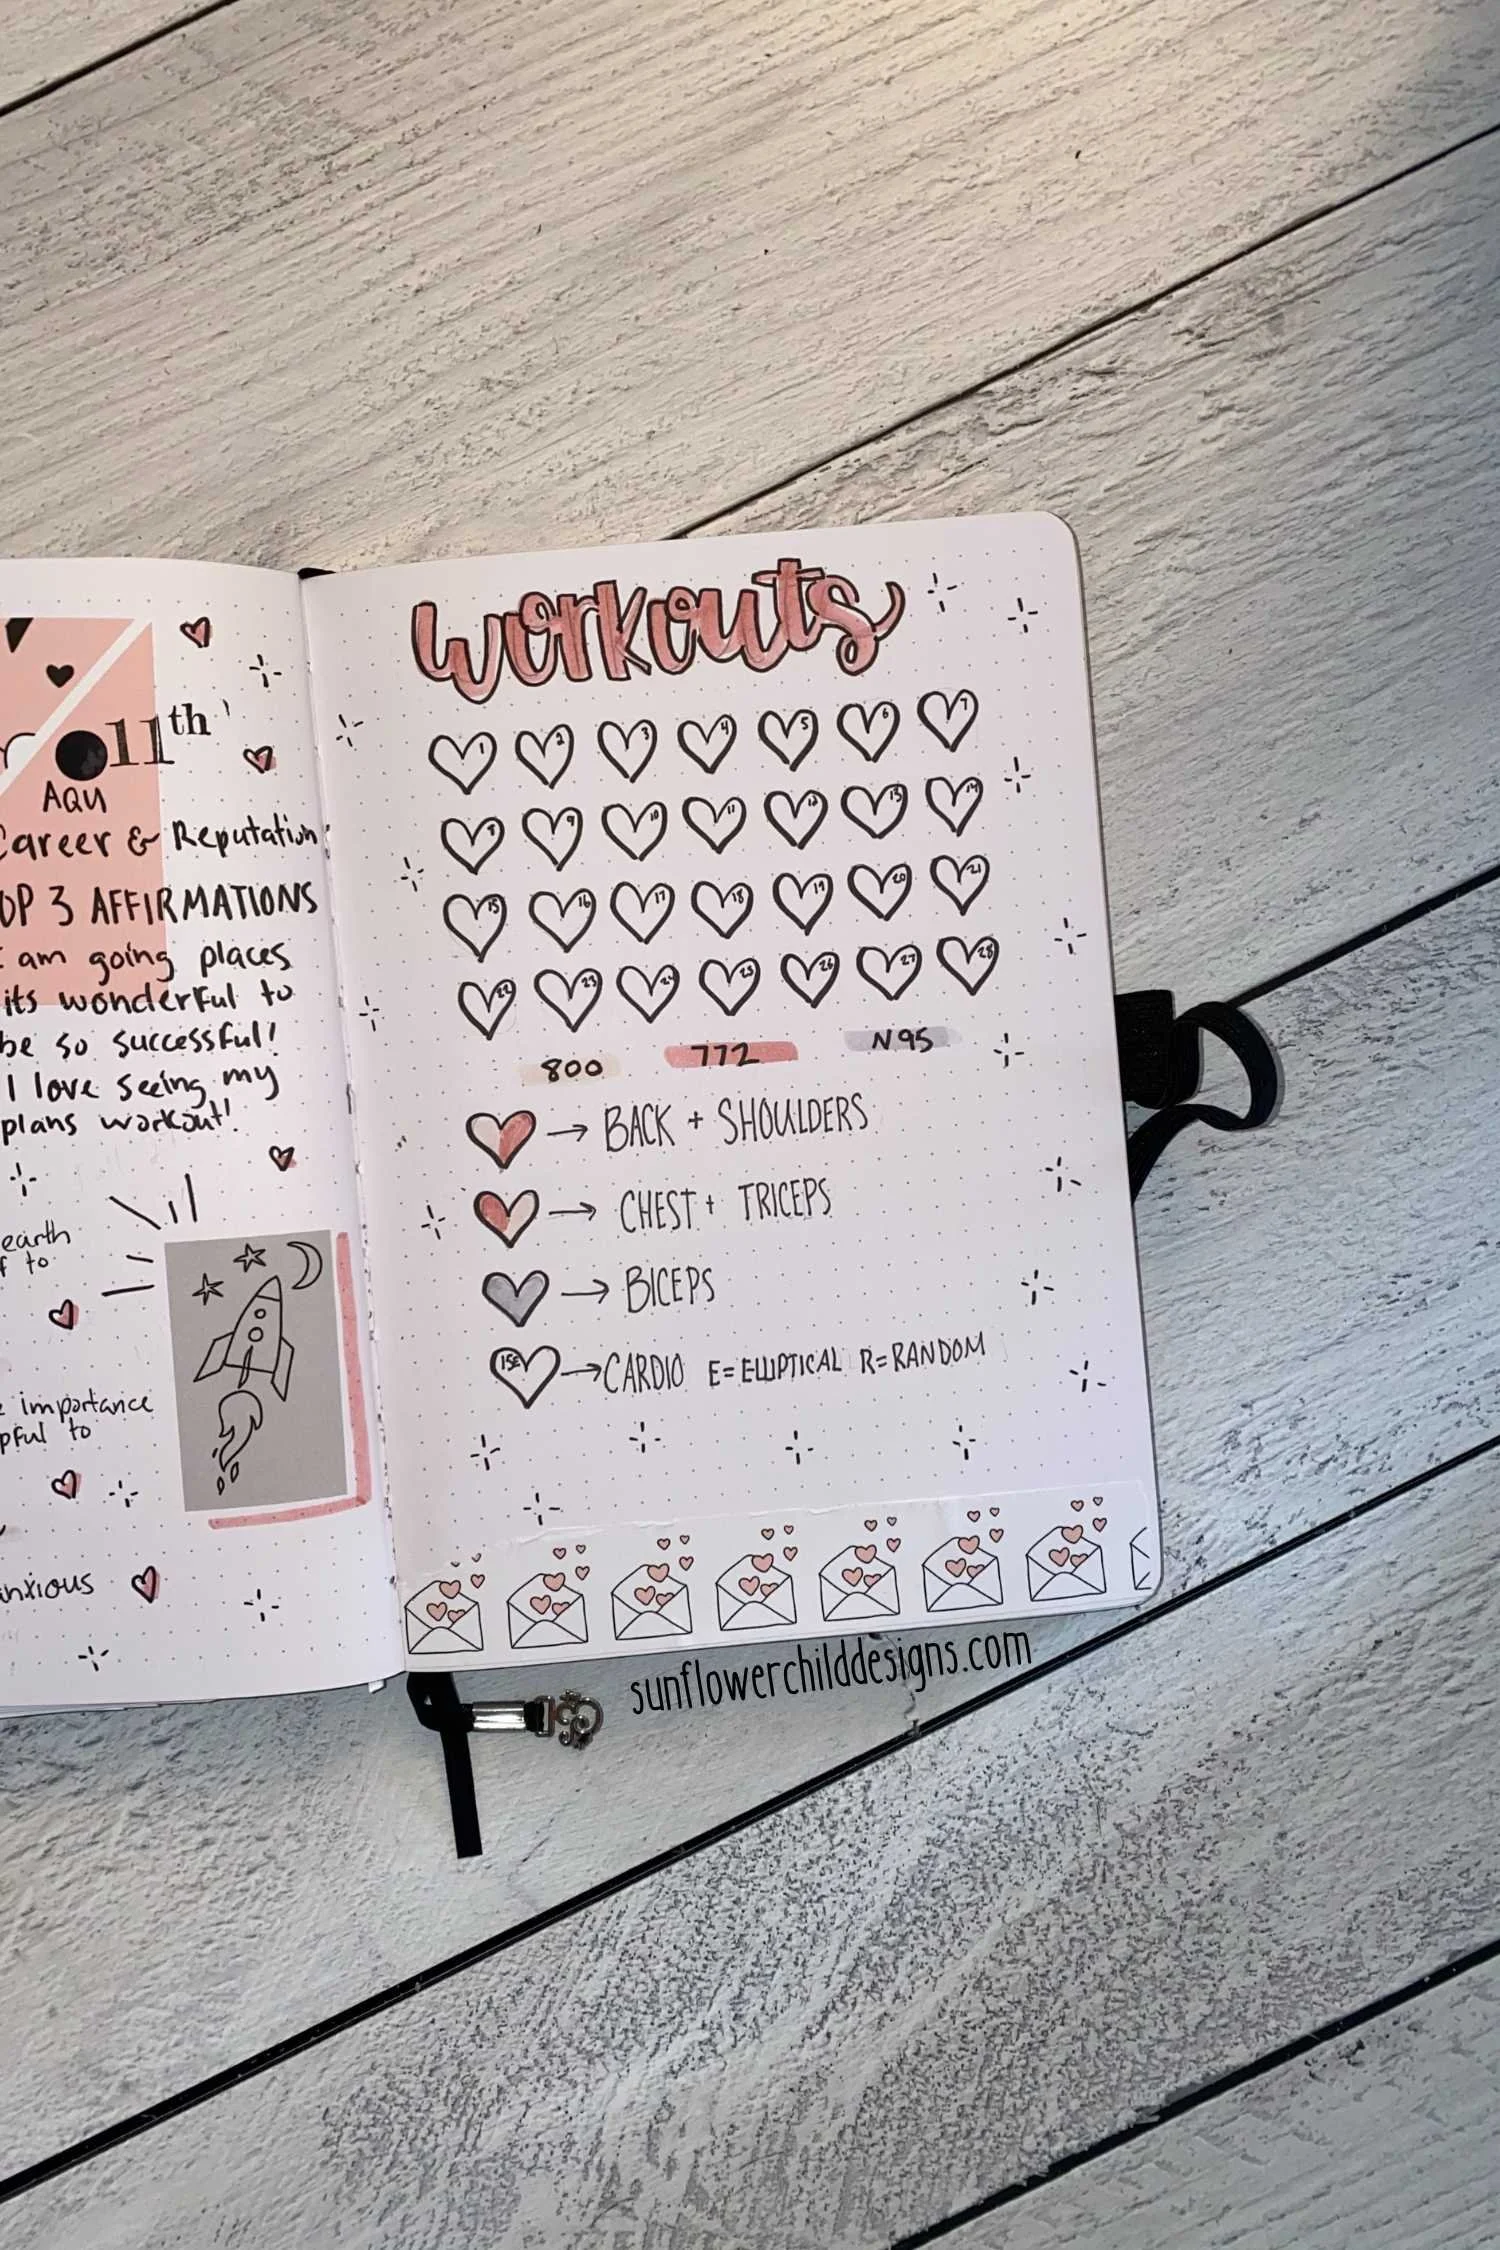 11th
AQU
Career & Reputation
OP 3 AFFIRMATIONS
I am going places
its wonderful to
be so successful!
I love seeing my
plans workout!
earth
to
importance
to
anxious
workouts
1 2 3 4 5 6 7
8 9 10 11 12 13 14
15 16 17 18 19 20 21
22 23 24 25 26 27 28
800 772 N95
→ BACK + SHOULDERS
→ CHEST + TRICEPS
→ BICEPS
15E → CARDIO E=ELLIPTICAL R=RANDOM
sunflowerchilddesigns.com